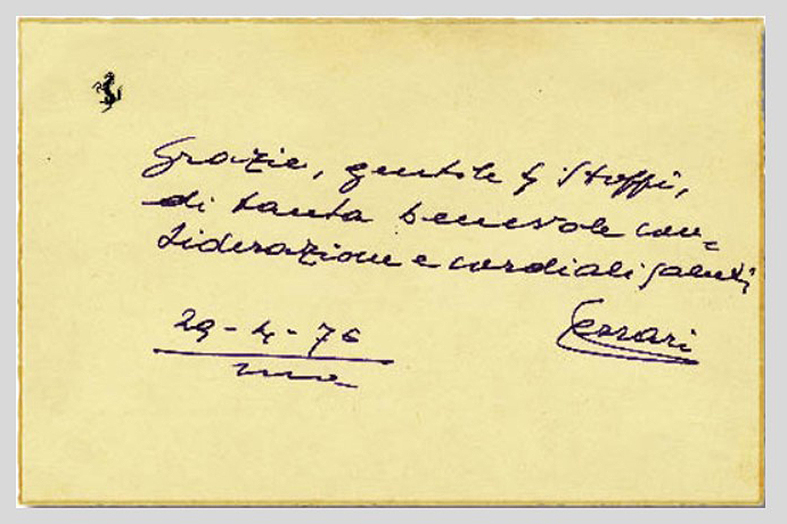 Grazie, gentile Sg Stoppi,
di tanta benevole con=
siderazione e cordiali saluti
Ferrari
29-4-76
mo